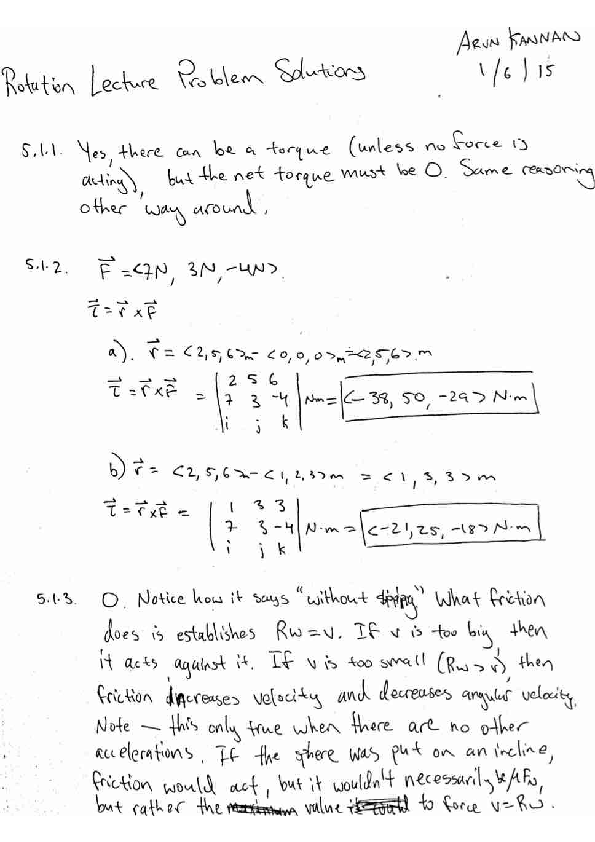 ARUN KANNAN
1/6/15
Rotation Lecture Problem Solutions
5.1.1. Yes, there can be a torque (unless no force is
acting), but the net torque must be 0. Same reasoning
other way around.
5.1.2. F⃗ = <7N, 3N, -4N>.
τ⃗ = r⃗ × F⃗
a). r⃗ = <2,5,6>m - <0,0,0>m = <2,5,6>m
τ⃗ = r⃗ × F⃗ = | 2 5 6 | Nm = <-38, 50, -29> N·m
7 3 -4
i j k
b) r⃗ = <2,5,6>m - <1,2,3>m = <1,3,3>m
τ⃗ = r⃗ × F⃗ = | 1 3 3 | N·m = <-21, 25, -18> N·m
7 3 -4
i j k
5.1.3. 0. Notice how it says "without" What friction
does is establishes Rw=v. If v is too big, then
it acts against it. If v is too small (Rw>v), then
friction increases velocity and decreases angular velocity.
Note — this only true when there are no other
accelerations. If the sphere was put on an incline,
friction would act, but it wouldn't necessarily be μFN,
but rather the value to force v=Rw.